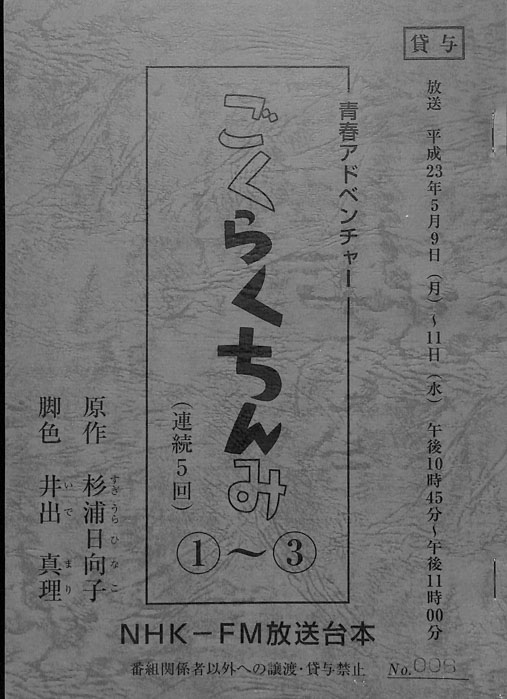 貸与
放送 平成23年5月9日(月)~11日(水) 午後10時45分~午後11時00分
青春アドベンチャー
ごくらくちんみ
(連続5回)
①~③
原作 杉浦日向子
すぎ うら ひ な こ
脚色 井出 真理
い で ま り
NHK-FM放送台本
番組関係者以外への譲渡・貸与禁止
No.008